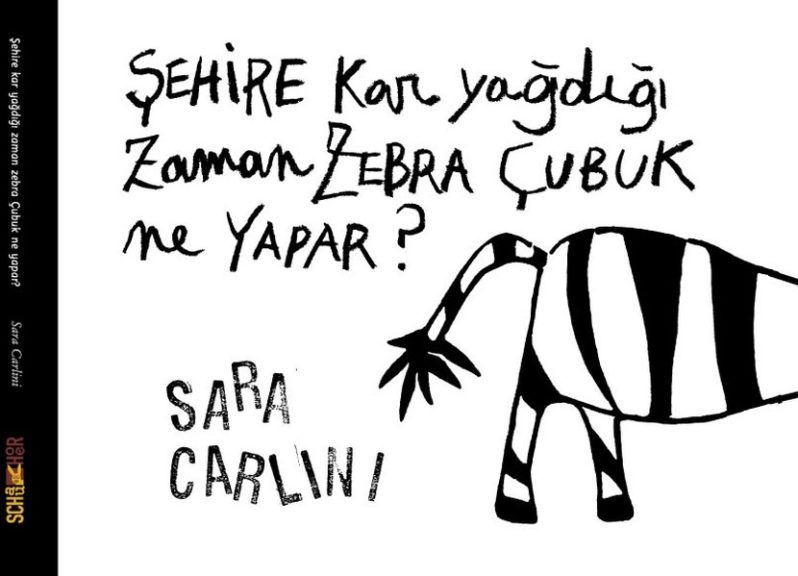 ŞEHİRE Kar yağdığı
Zaman ZEBRA ÇUBUK
ne YAPAR?
SARA
CARLINI
Şehire kar yağdığı zaman zebra Çubuk ne yapar?
Sara Carlini